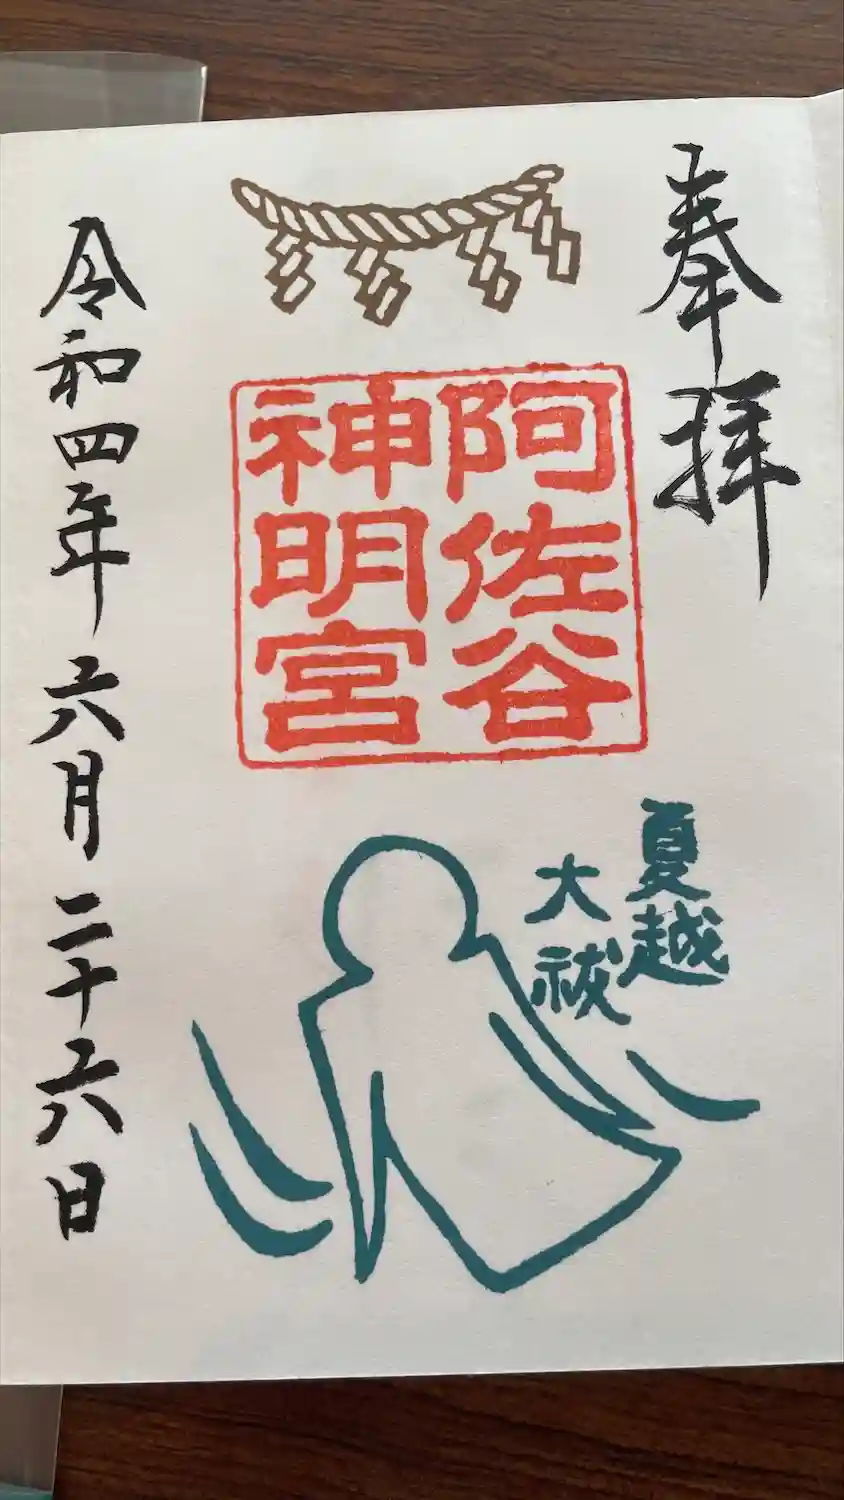 奉拝
阿佐谷
神明宮
夏越
大祓
令和四年六月二十六日